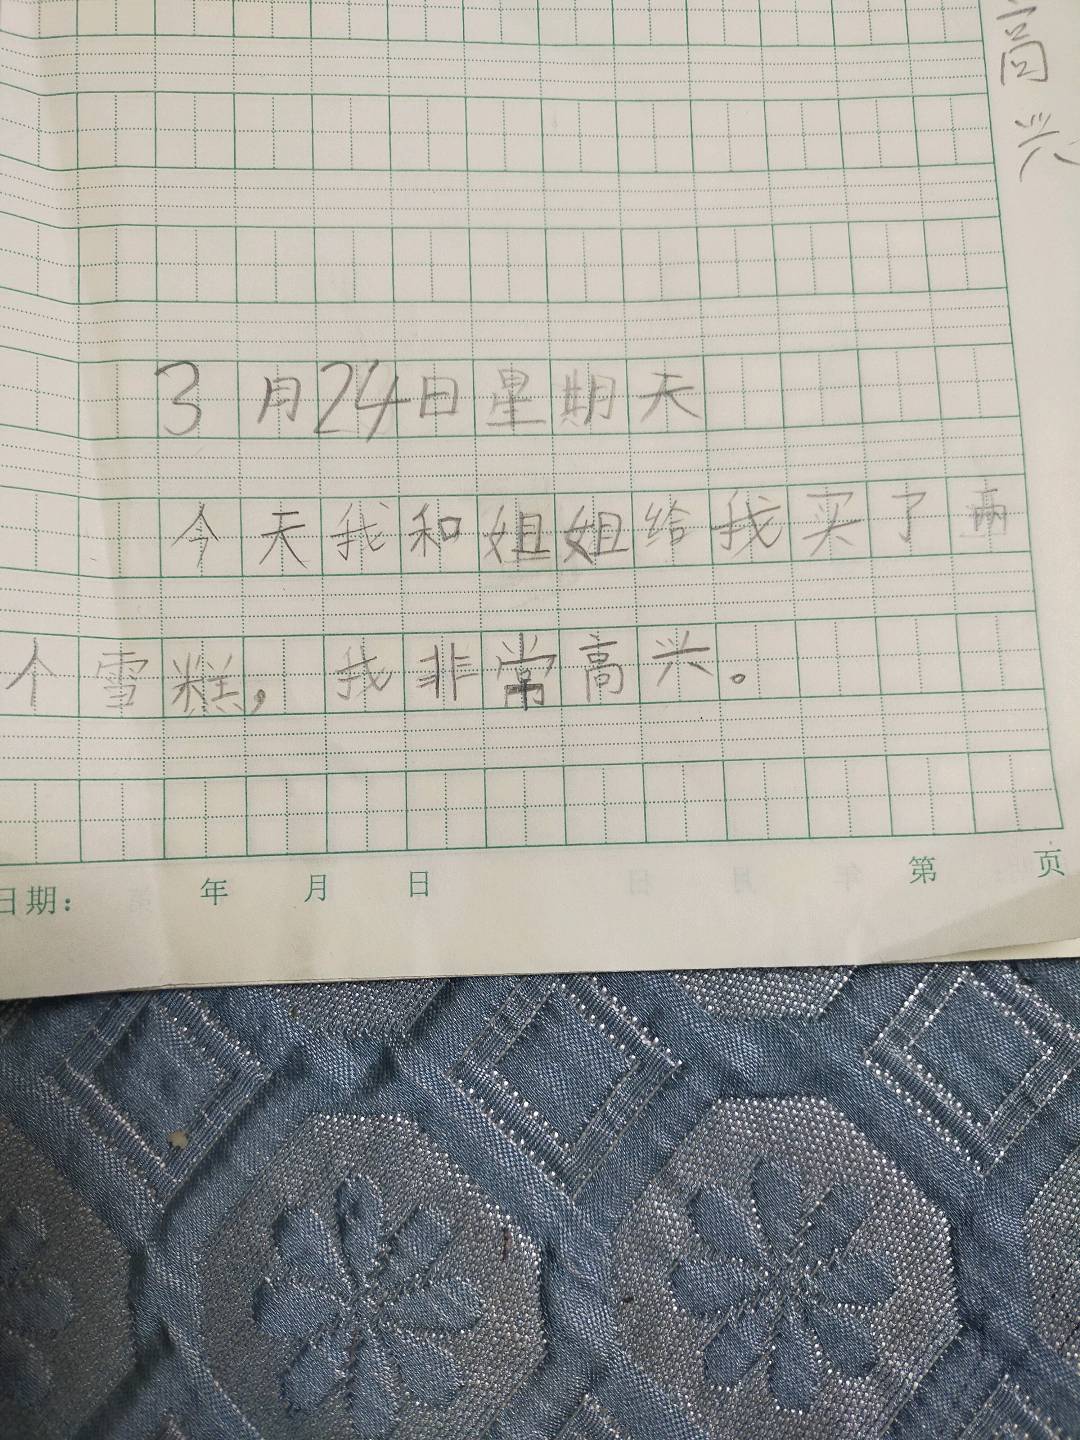 高兴
3月24日星期天
今天我和姐姐给我买了两
个雪糕，我非常高兴。
日期： 年 月 日 第 页